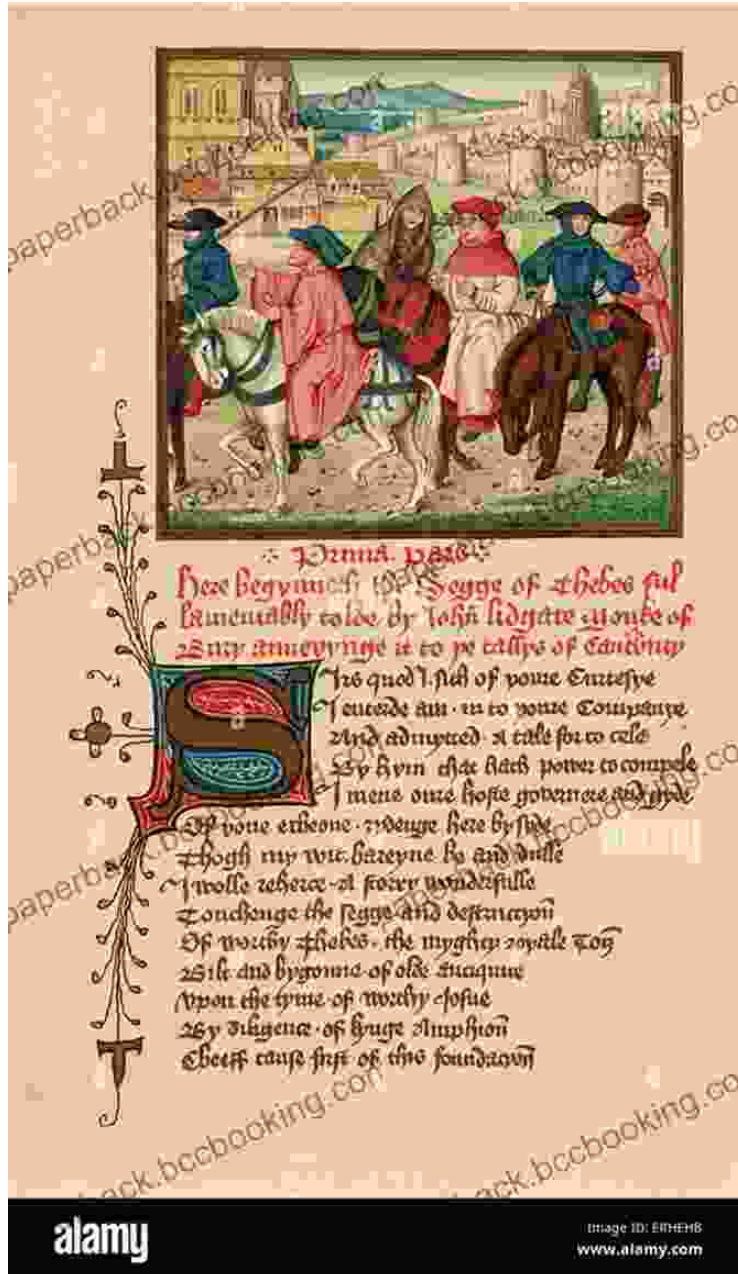 Prima pars
here begynneth the Segge of Thebes ful
lamentably tolde by John lidgate Monke of
Bury anneyynge it to þe tallys of Caunt̄bury
Sirs quod I. sith of youre Curtesye
I entrede am in to youre Companye
And admytted. A tale for to tele
By hym that hath power to compele
I mene oure hoste governere and gyde
Of youe echeone. rydenge here by syde
Thogh my wit bareyne be and dulle
I wolle reherce A story wonderfulle
Touchenge the segge and destructyon̄
Of worthy Thebes. the myghty royale Ton̄
Bilt and bygonne of olde antiquite
Vpon the tyme of worthy Josue
By diligence of kynge Amphion̄
Cheeff cause first of this foundacyon̄
paperback.bccbooking.com
alamy
Image ID: ERHEHB
www.alamy.com